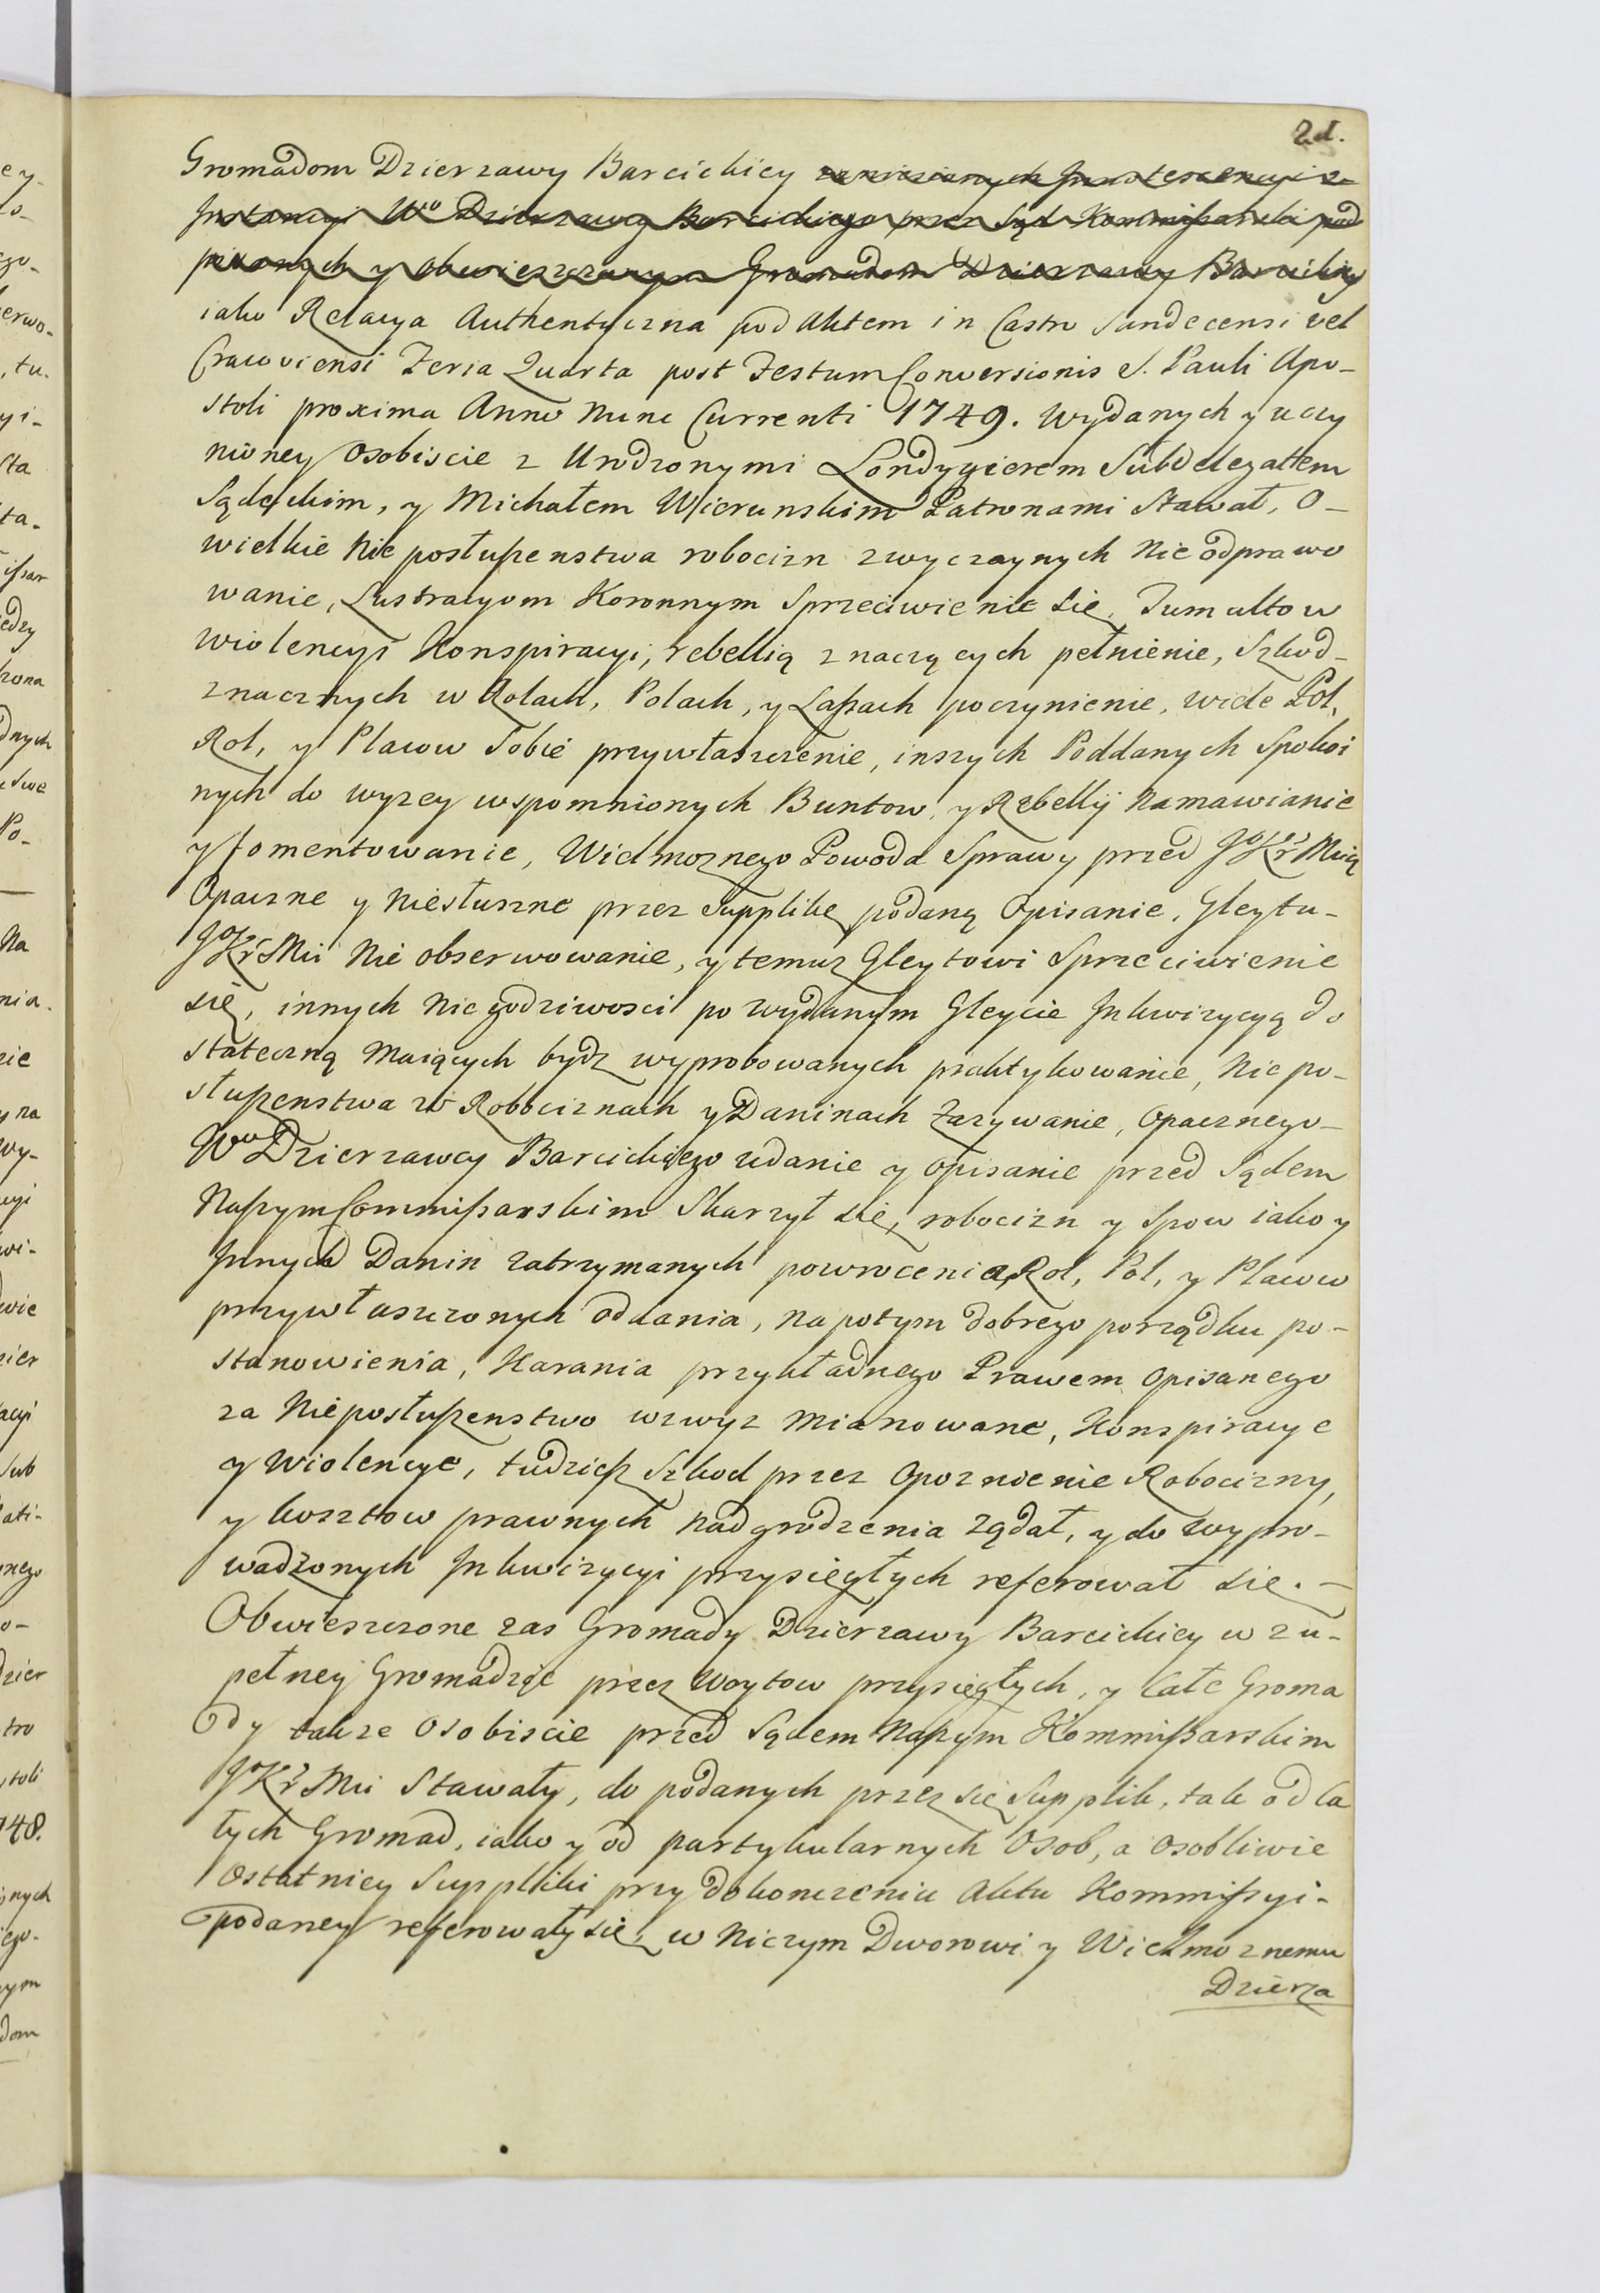 2d.
Gromadom Dzierzawy Barcickiey
Instancyi Wo Dzierzawcy Barcickiego przez Sąd Kommißarski pod
pisanych y obwieszczonym Gromadom Dzierzawy Barcickiey
iako Relacya Authentyczna pod Aktem in Castro Sandecensi vel
Cracoviensi Feria Quarta post Festum Conversionis S. Pauli Apo-
stoli proxima Anno Nunc Currenti 1749. wydanych y uczy
nioney Osobiscie z Urodzonymi Londygierem Subdelegatem
Sądeckim, y Michałem Wierunskim Patronami Stawał, O-
wielkie Nie posłußenstwa robocizn zwyczaynych Nie odprawo
wanie, Lustracyom Koronnym Sprzeciwienie się, Tumultow
wiolencyi Konspiracyi, rebellią znaczących pełnienie, Szkod-
znacznych w Rolach, Polach, y Laßach poczynienie, wiele Pol,
Rol, y Placow Sobie przywłaszczenie, inszych Poddanych Spokoi
nych do wyzey wspomnionych Buntow, y Rebellij Namawianie
y fomentowanie, Wielmoznego Powoda Sprawy przed JoKr Mcią
Opaczne y Niesłuszne przez Supplikę podaną Opisanie, Gleytu-
JoKr Mci Nie obserwowanie, y temuz Gleytowi Sprzeciwienie
się, innych Nie godziwosci po wydanym Gleycie Inkwizycyą do
stateczną Maiących bydz wyprobowanych praktykowanie, Nie po-
słußenstwa w Robociznach y Daninach Zazywanie, Opacznego-
Wo Dzierzawcy Barcickiego udanie y opisanie przed Sądem
Naßym Commißarskim Skarzył się, robocizn y Spow iako y
Innych Danin zatrzymanych powrocenia, Rol, Pol, y Placow
przywłaszczonych oddania, na potym dobrego porządku po-
stanowienia, Karania przykładnego Prawem Opisanego
za Nieposłußenstwo wzwyz Mianowane, Konspiracye
y Wiolencye, tudzież Szkod przez Opoznienie Robocizny,
y kosztow prawnych nadgrodzenia Ządał, y do wypro-
wadzonych Inkwizycyi przysięgłych referował się.-
Obwieszczone zas Gromady Dzierzawy Barcickiey w zu-
pełney Gromadzie przez Woytow przysięgłych, y Całe Groma
dy takze Osobiscie przed Sądem Naßym Kommißarskim
JoKr Mci Stawały, do podanych przez się Supplik, tak od Ca
łych Gromad, iako y od partykularnych Osob, a osobliwie
Ostatniey Suppliki przy dokonczeniu Aktu Kommißyi-
podaney referowały się, w Niczym Dworowi y Wielmoznemu
Dzierza